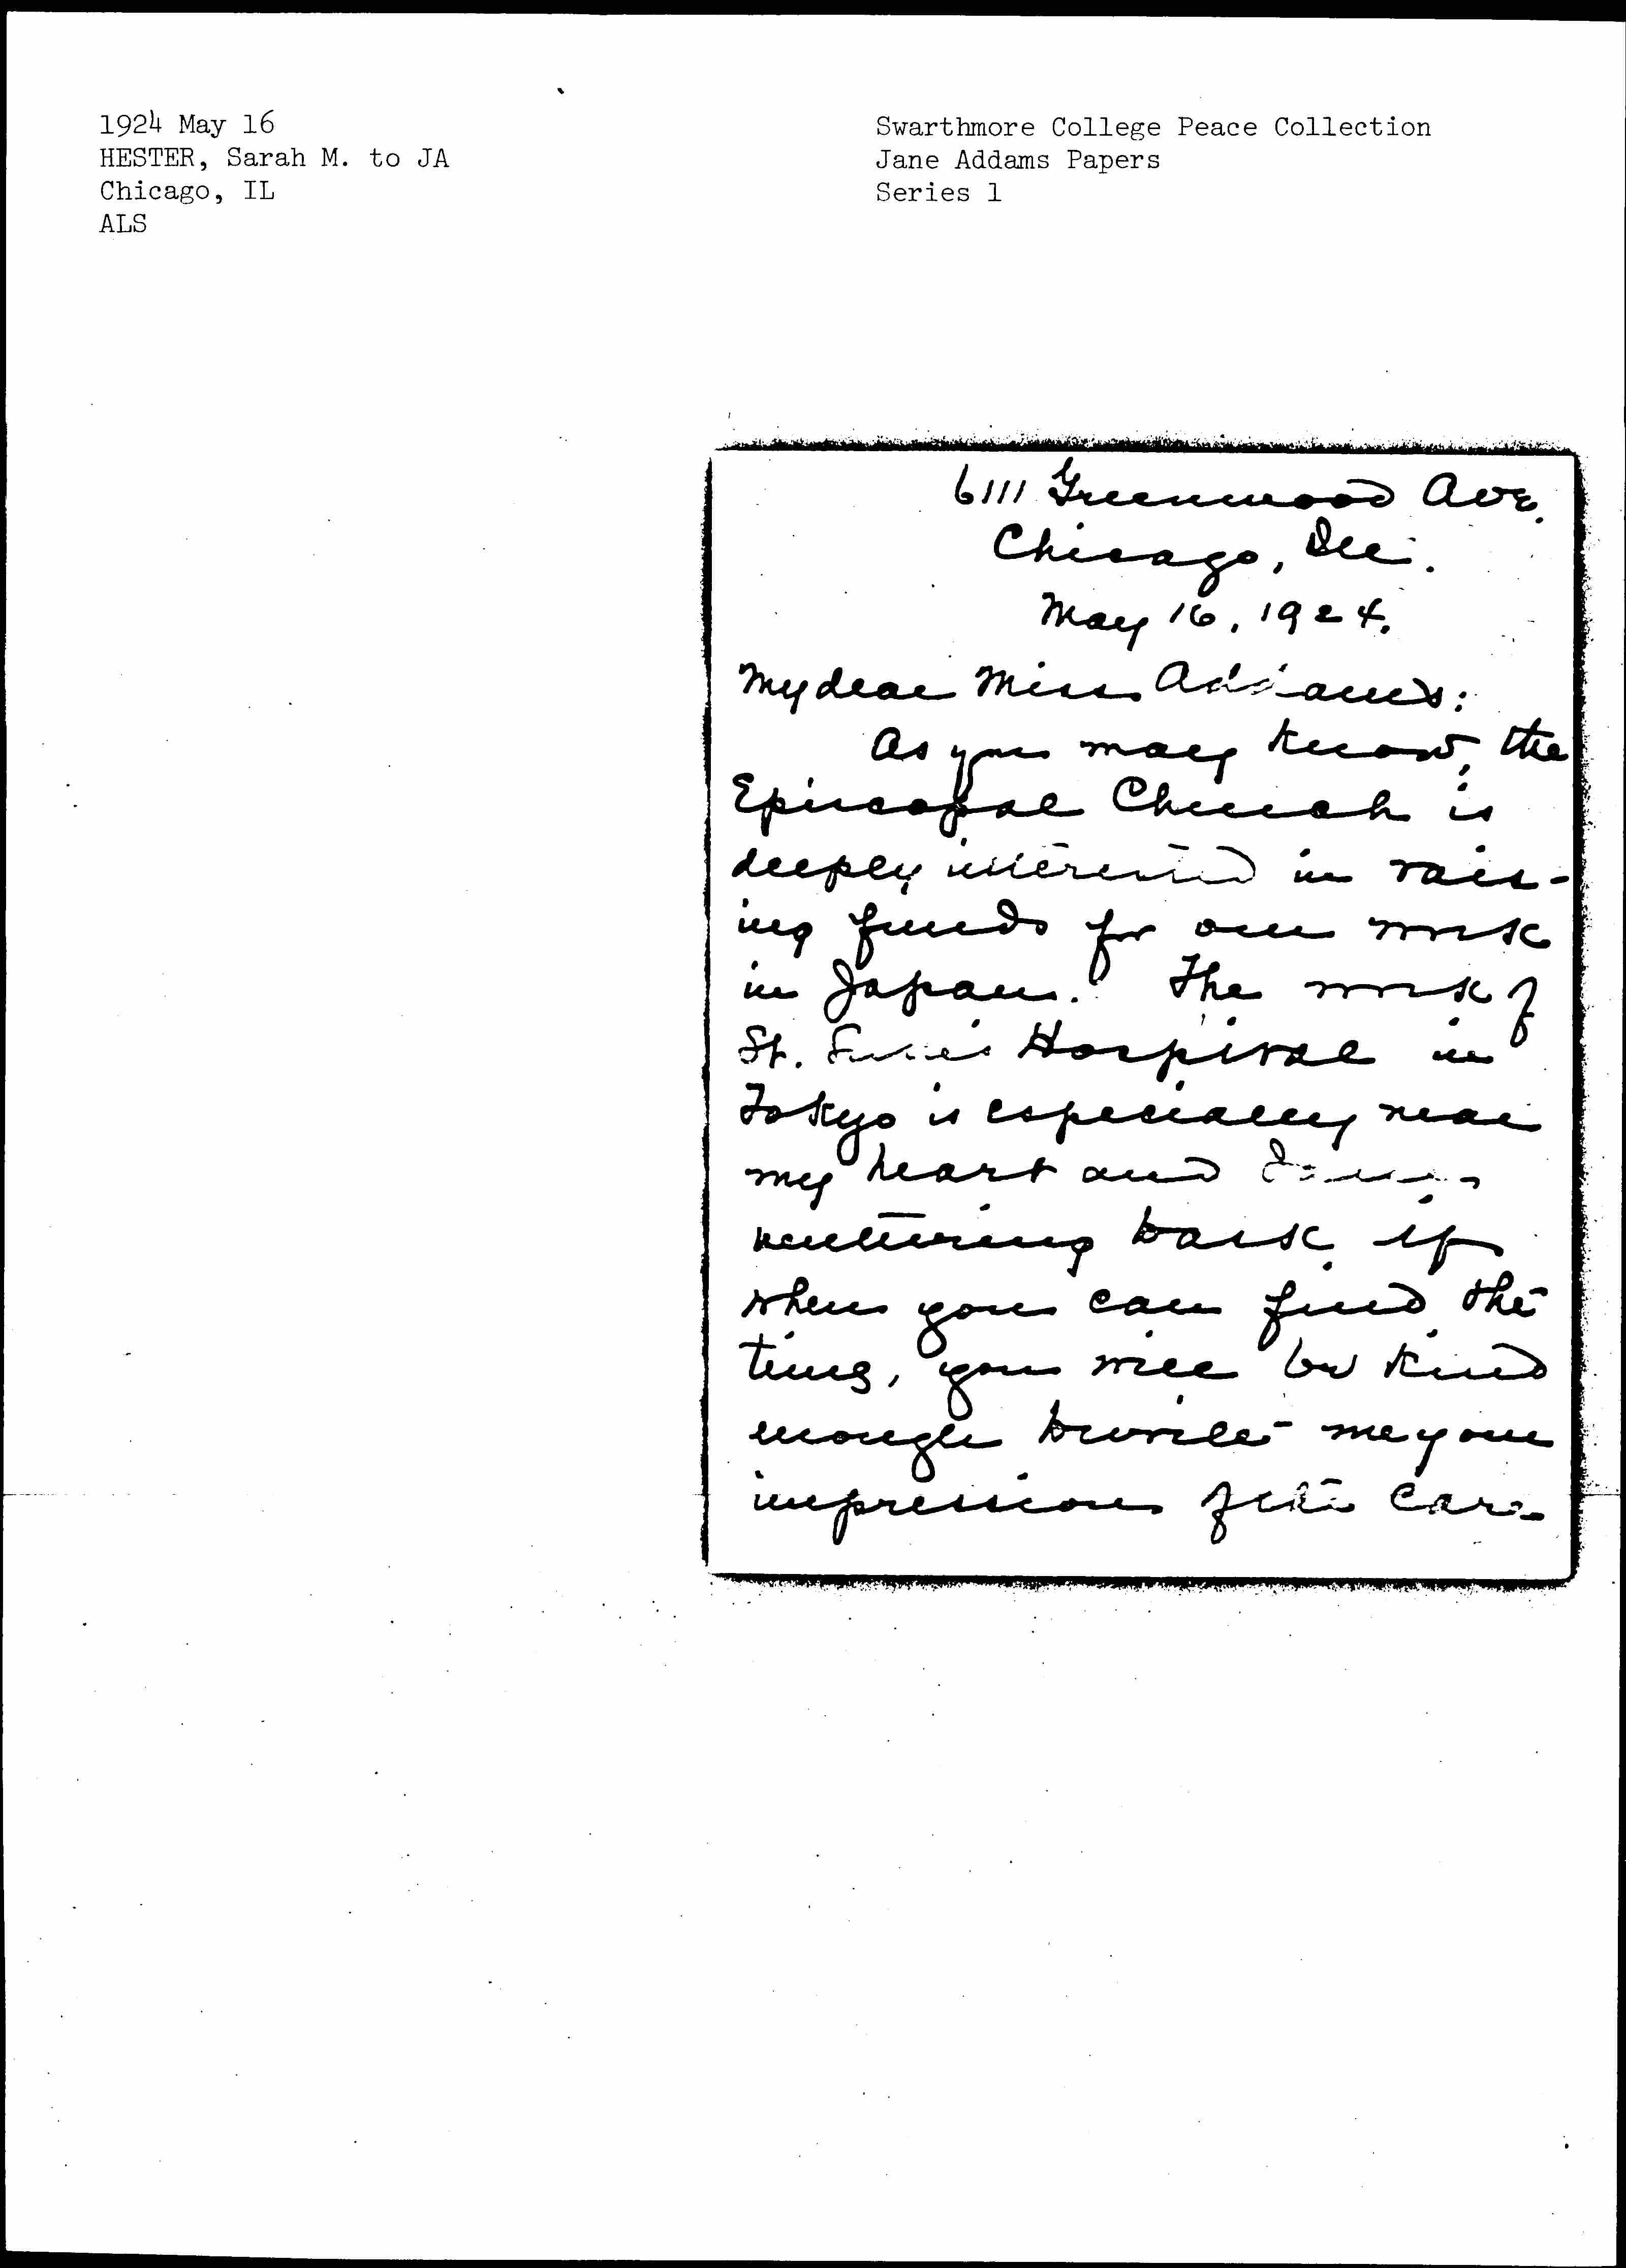 1924 May 16
HESTER, Sarah M. to JA
Chicago, IL
ALS
Swarthmore College Peace Collection
Jane Addams Papers
Series 1
6111 Greenwood Ave.
Chicago, Ill.
May 16, 1924.
My dear Miss Addams:
As you may know, the
Episcopal Church is
deeply interested in rais-
ing funds for our work
in Japan. The work of
St. Luke's Hospital in
Tokyo is especially near
my heart and I am
venturing to ask if
when you can find the
time, you will be kind
enough to write me your
impression of the care